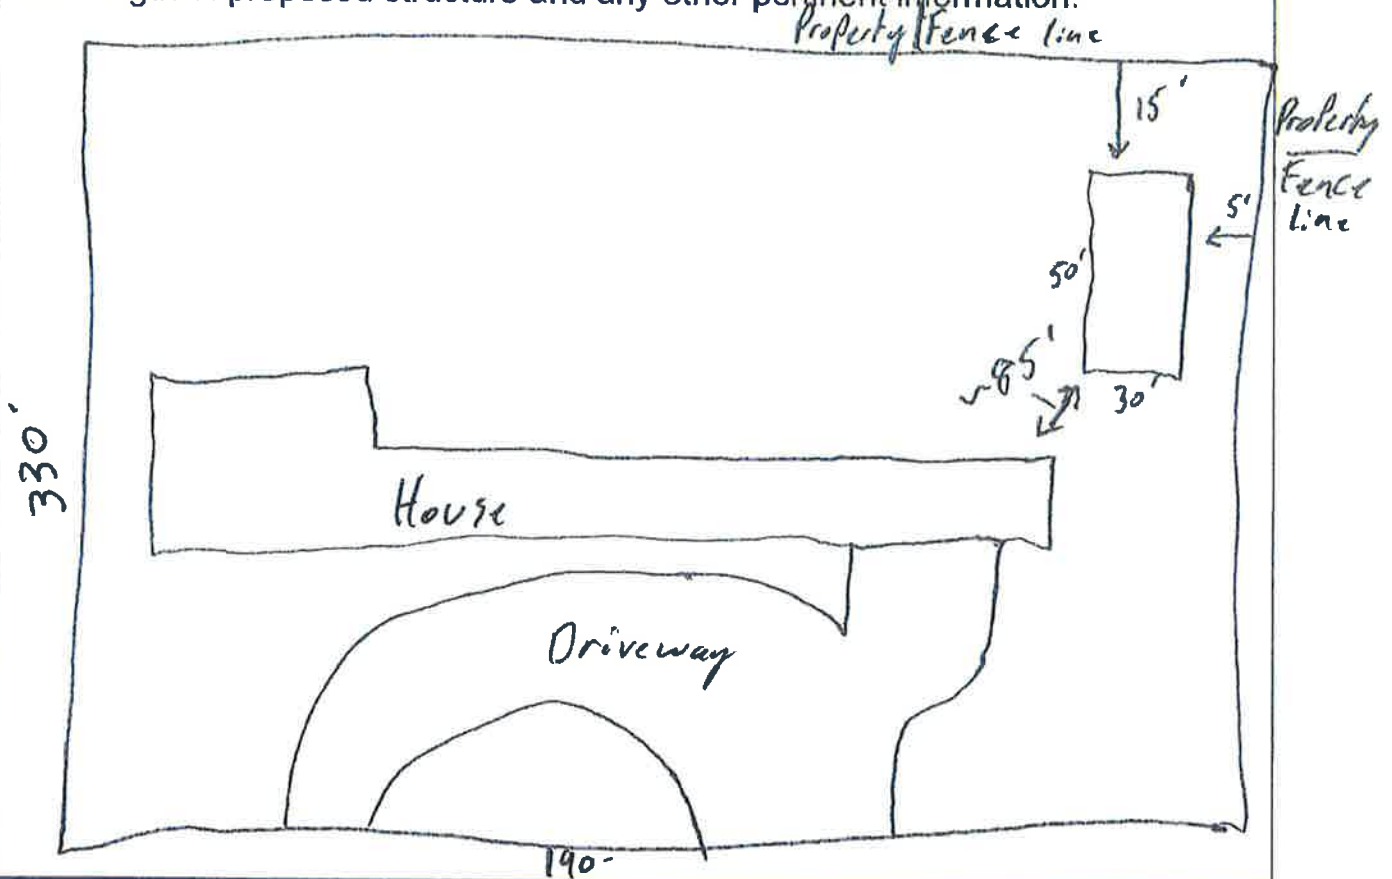 proposed structure and any other pertinent information.
Property/Fence line
15'
Property
Fence
line
5'
50'
~85'
30'
330'
House
Driveway
190'